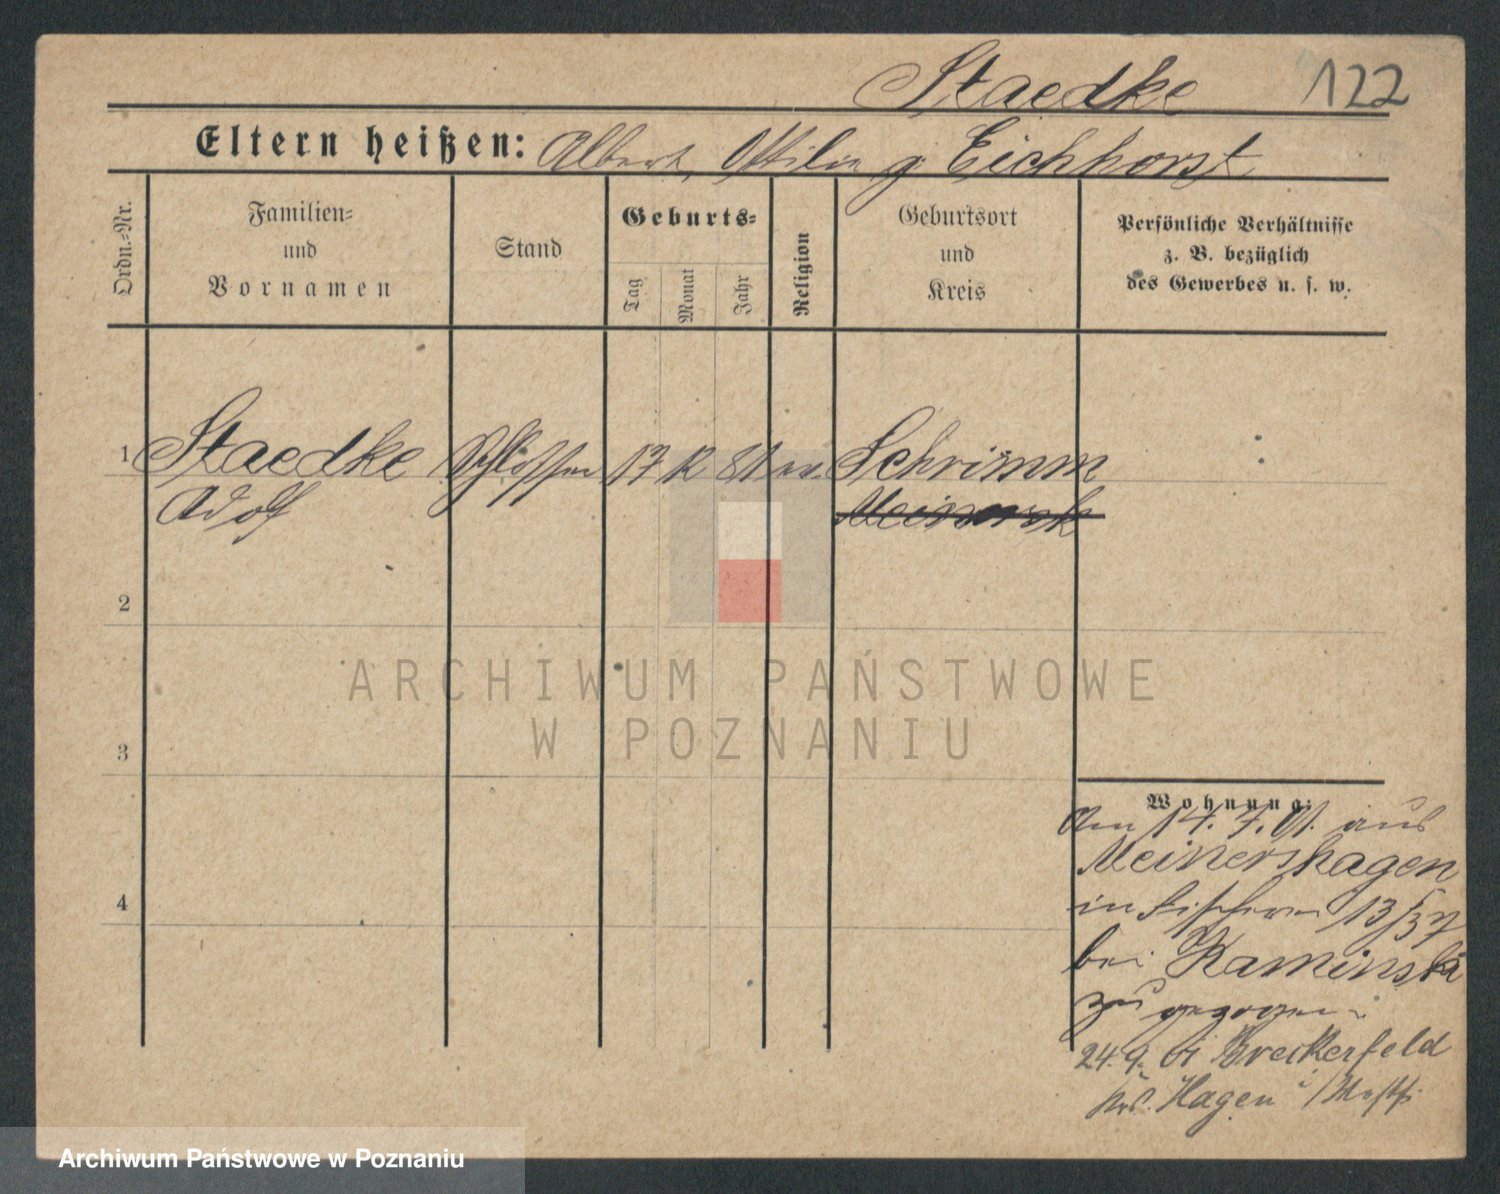 Staedke 122
Eltern heißen: Albert, Ottilie g. Eichhorst
Ordn.-Nr.
Familien-
und
Vornamen
Stand
Geburts-
Tag
Monat
Jahr
Religion
Geburtsort
und
Kreis
Persönliche Verhältnisse
z. B. bezüglich
des Gewerbes u. s. w.
1 Staedke Schlosser 17 12 81 ev. Schrimm
Adolf
2
3
4
Wohnung:
Am 14. 7. 01. aus
Meinershagen
in Fischerei 13/37
bei Kaminski
zugezogen
24. 9. 01 Breckerfeld
Krs. Hagen i/Westf.
ARCHIWUM PAŃSTWOWE
W POZNANIU
Archiwum Państwowe w Poznaniu